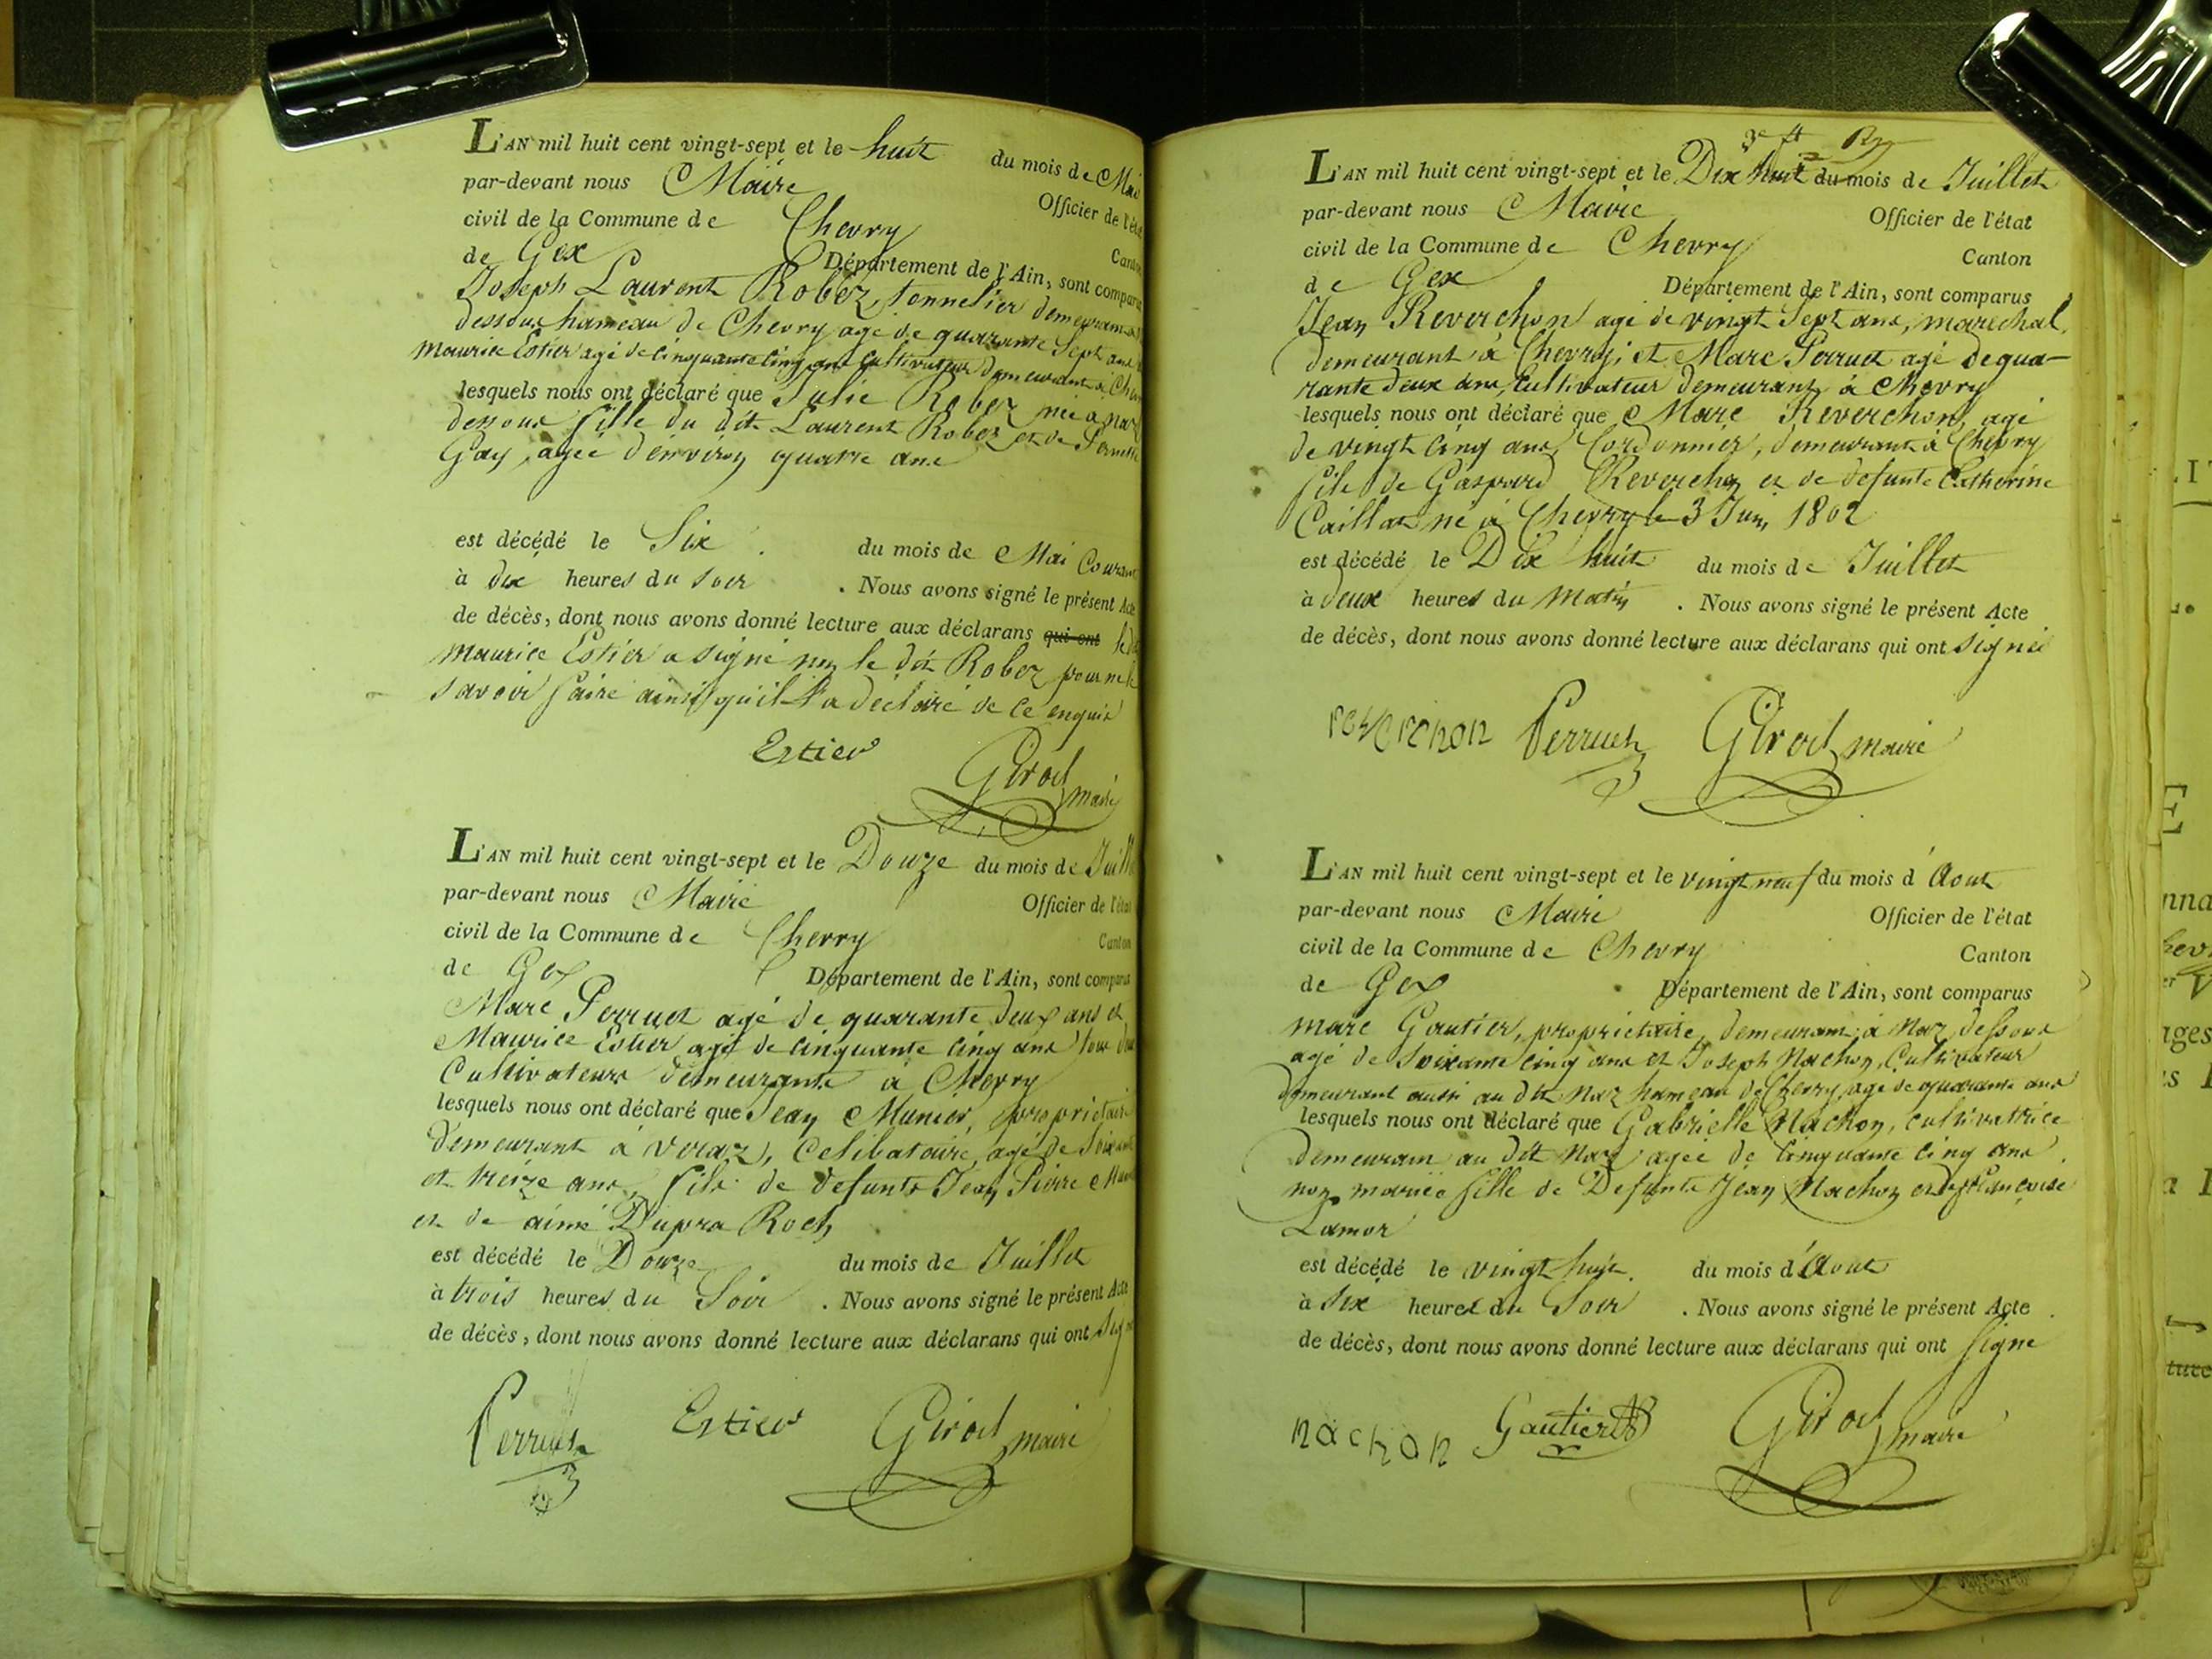 L'AN mil huit cent vingt-sept et le huit du mois de Mai
par-devant nous Maire Officier de l'état
civil de la Commune de Chevry Canton
de Gex Département de l'Ain, sont comparus
Joseph Laurent Robez, tonnelier demeurant à
dessous hameau de Chevry agé de quarante Sept ans
Maurice Estier agé de cinquante cinq ans Cultivateur demeurant à Chev
lesquels nous ont déclaré que Julie Robez née à naz
dessous fille du dit Laurent Robez et de Pernette
Gay, agée d'environ quatre ans
est décédé le Six du mois de Mai Courant
à dix heures du soir . Nous avons signé le présent Acte
de décès, dont nous avons donné lecture aux déclarans qui ont le dit
Maurice Estier a signé non le dit Robez pour ne le
savoir faire ainsi qu'il l'a declaré de ce enquis
Estier
Girod maire
L'AN mil huit cent vingt-sept et le Douze du mois de Juill
par-devant nous Maire Officier de l'état
civil de la Commune de Chevry Canton
de Gex Département de l'Ain, sont comparus
Marc Perruet agé de quarante deux ans et
Maurice Estier agé de cinquante cinq ans tous deux
Cultivateurs demeurants à Chevry
lesquels nous ont déclaré que Jean Munier, proprietaire
demeurant à Veraz, Celibataire, agé de Soixante
et treize ans, fils de defunts Jean Pierre Mun
et de aimé Dupra Roch
est décédé le Douze du mois de Juillet
à trois heures du Soir . Nous avons signé le présent Acte
de décès, dont nous avons donné lecture aux déclarans qui ont sign
Perruet Estier Girod maire
3e f
L'AN mil huit cent vingt-sept et le Dix huit du mois de Juillet
par-devant nous Maire Officier de l'état
civil de la Commune de Chevry Canton
de Gex Département de l'Ain, sont comparus
Jean Reverchon agé de vingt Sept ans, marechal,
demeurant à Chevry, et Marc Perruet agé de qua-
rante deux ans, Cultivateur demeurant à Chevry
lesquels nous ont déclaré que Marc Reverchon, agé
de vingt cinq ans, Cordonnier, demeurant à Chevry
fils de Gaspard Reverchon et de defunte Catherine
Caillat né à Chevry le 3 Juin 1802
est décédé le Dix huit du mois de Juillet
à deux heures du Matin . Nous avons signé le présent Acte
de décès, dont nous avons donné lecture aux déclarans qui ont signé
reverchon Perruet Girod maire
L'AN mil huit cent vingt-sept et le vingt neuf du mois d'Aout
par-devant nous Maire Officier de l'état
civil de la Commune de Chevry Canton
de Gex Département de l'Ain, sont comparus
Marc Gautier, proprietaire, demeurant à Naz dessous
agé de soixante cinq ans et Joseph Nachon, Cultivateur
demeurant aussi au dit Naz hameau de Chevry, agé de quarante ans
lesquels nous ont déclaré que Gabrielle Nachon, cultivatrice
demeurant au dit Naz agée de cinquante cinq ans
non mariée fille de Defunts Jean Nachon et de françoise
Lamor
est décédé le vingt huit du mois d'Aout
à six heures du Soir . Nous avons signé le présent Acte
de décès, dont nous avons donné lecture aux déclarans qui ont signé
nachon Gautier Girod maire